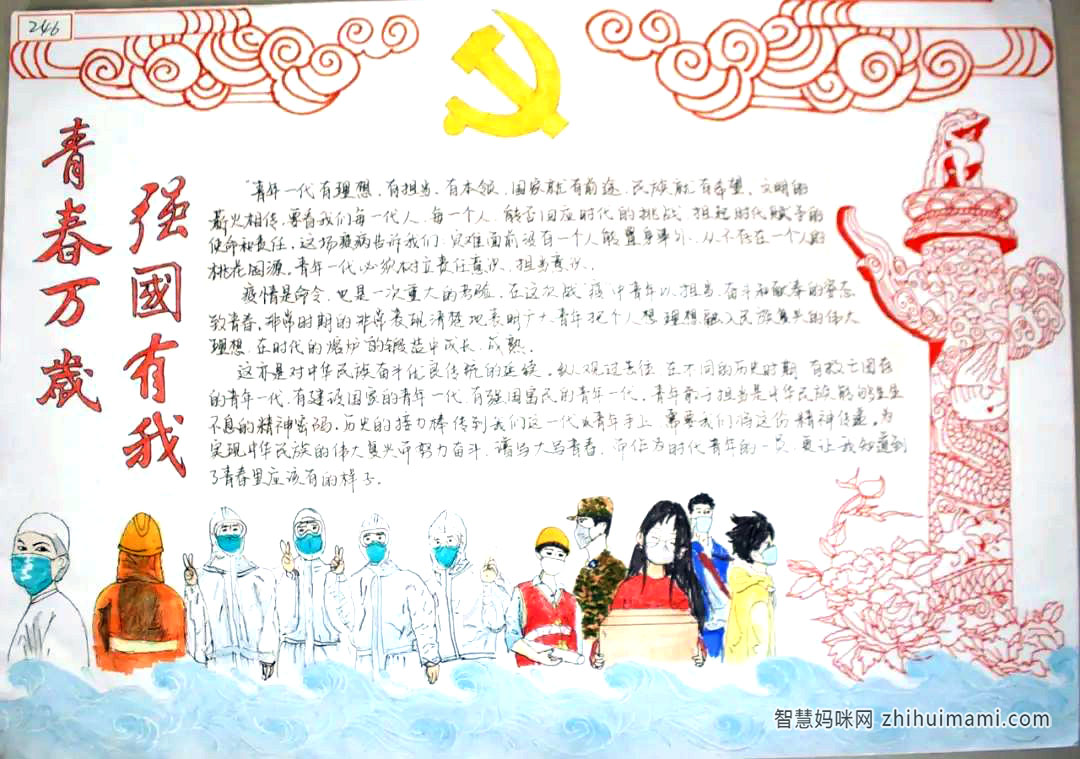 246
青春万歲
强國有我
"青年一代有理想、有担当、有本领,国家就有前途,民族就有希望。文明的
薪火相传,要看我们每一代人、每一个人,能否回应时代的挑战,担起时代赋予的
使命和责任。这场疫病告诉我们,灾难面前没有一个人能置身事外,从不存在一个人的
桃花园源。青年一代必须树立责任意识、担当意识。
疫情是命令,也是一次重大的考验。在这次战"疫"中青年以担当、奋斗和献奉的姿态
致青春。非常时期的非常表现清楚地表明广大青年把个人想理想融入民族复兴的伟大
理想,在时代的熔炉的锻造中成长、成熟。
这亦是对中华民族奋斗优良传统的延续。纵观过去位,在不同的历史时期,有救亡图存
的青年一代,有建设国家的青年一代,有强国富民的青年一代。青年勇于担当是中华民族能够生生
不息的精神密码。历史的接力棒传到我们这一代青年手上,需要我们将这份精神传递。为
实现中华民族的伟大复兴而努力奋斗,谱写大写青春,而作为时代青年的一员,更让我知道到
了青春里应该有的样子。
智慧妈咪网 zhihuimami.com